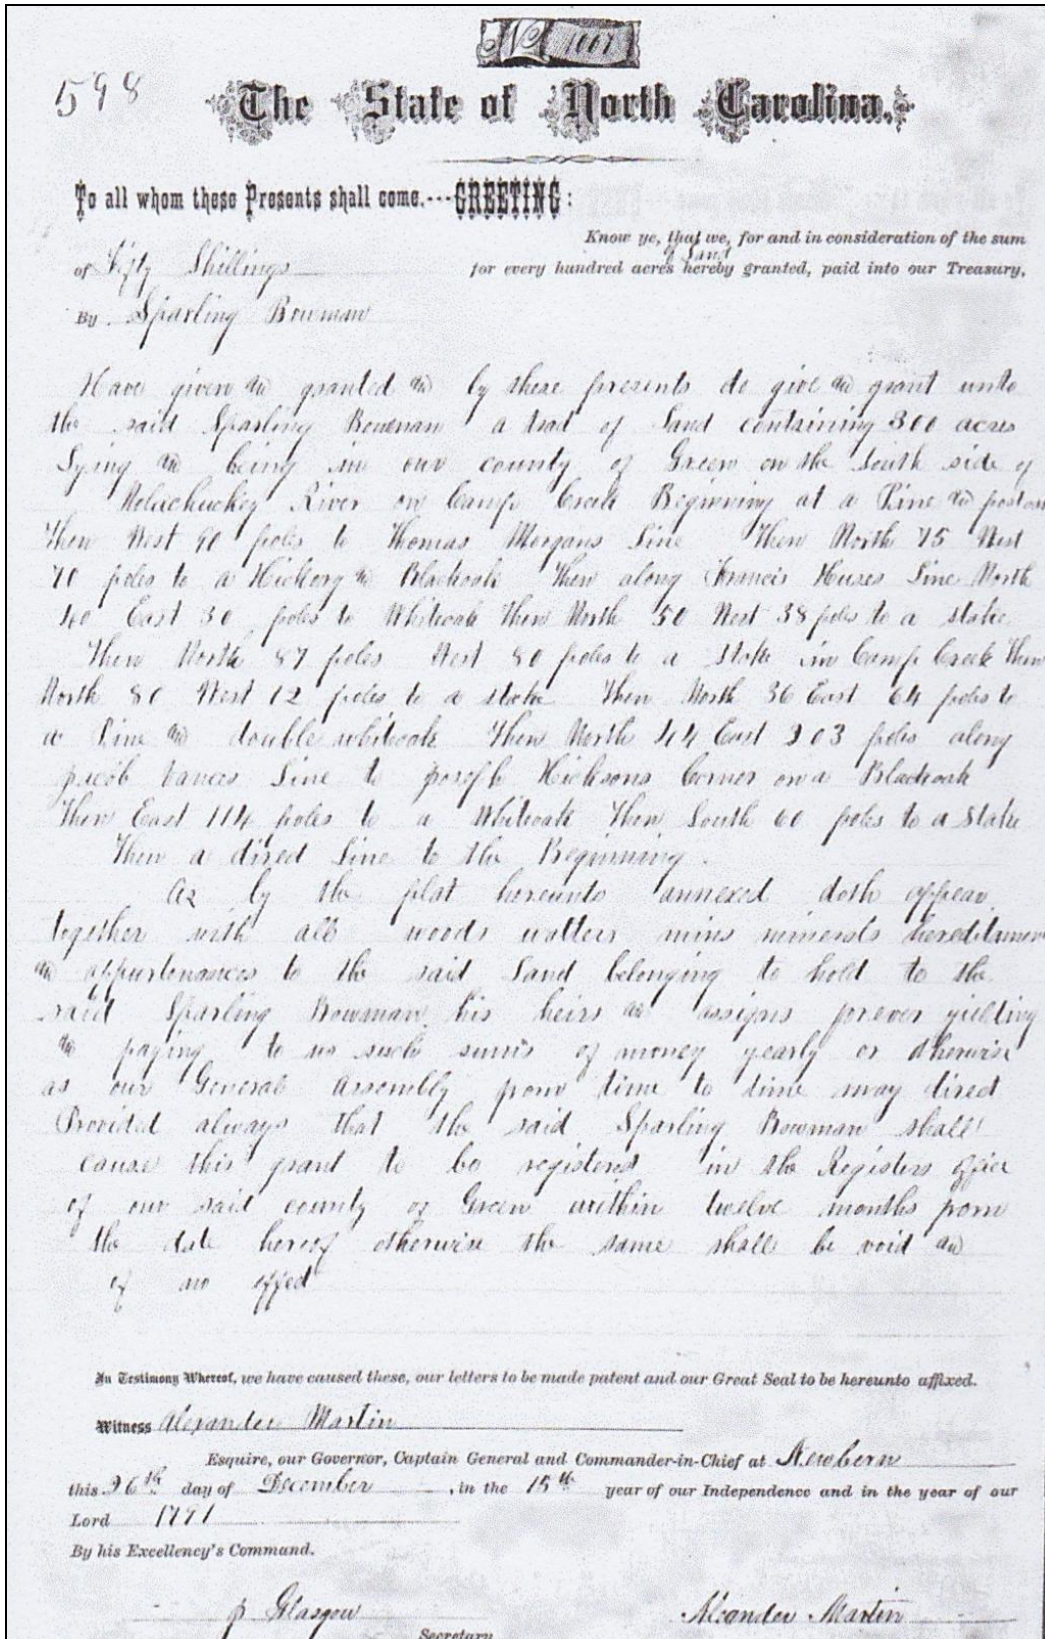 No 1007
598
The State of North Carolina.
To all whom these Presents shall come,---GREETING:
Know ye, that we, for and in consideration of the sum
of Land
of Fifty Shillings for every hundred acres hereby granted, paid into our Treasury,
By Sparling Bowman
Have given and granted and by these presents do give and grant unto
the said Sparling Bowman a trad of Land containing 300 acres
Lying and being in our county of Green on the South side of
Nolachuckey River on Camp Creek Beginning at a Pine and
Then West 90 poles to Thomas Morgans Line Then North 75 West
70 poles to a Hickory and Blackoak Then along Francis Huses Line North
40 East 30 poles to Whiteoak Then North 50 West 38 poles to a stake
Then North 87 poles West 80 poles to a stake in Camp Creek Then
North 80 West 12 poles to a stake Then North 36 East 64 poles to
a Pine and double whiteoak Then North 44 East 203 poles along
jacob Vances Line to joseph Hicksons Corner on a Blackoak
Then East 114 poles to a Whiteoak Then South 60 poles to a Stake
Then a dired Line to the Beginning.
As by the plat hereunto annexed doth appear
together with all woods watters mins minerals hereditamen
and appurtenances to the said Land belonging to hold to the
said Sparling Bowman his heirs and assigns forever yielting
and paying to us such sums of money yearly or otherwise
as our General Assembly from time to time may direct
Provided always that the said Sparling Bowman shall
cause this grant to be registered in the Registers office
of our said county of Green within twelve months from
the date hereof otherwise the same shall be void and
of no effed
In Testimony Whereof, we have caused these, our letters to be made patent and our Great Seal to be hereunto affixed.
Witness Alexander Martin
Esquire, our Governor, Captain General and Commander-in-Chief at Newbern
this 26th day of December, in the 15th year of our Independence and in the year of our
Lord 1791
By his Excellency's Command.
J Glasgow Alxander Martin
Secretary